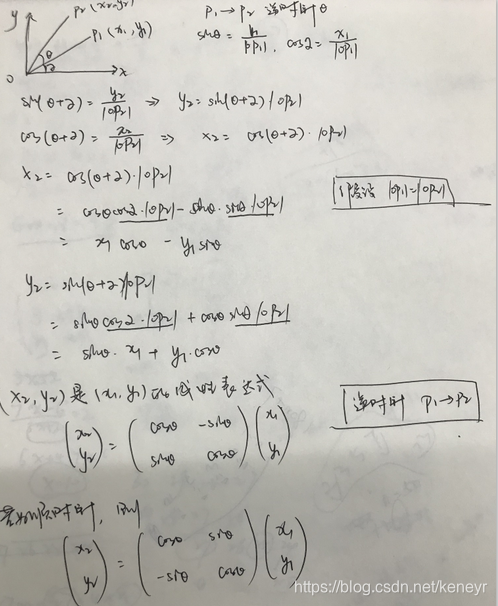 y P2(x2,y2) P1→P2 逆时针θ
P1(x1,y1) sinθ = y1/|OP1|, cos2 = x1/|OP1|
θ
2
O x
sin(θ+2) = y2/|OP2| ⇒ y2 = sin(θ+2)|OP2|
cos(θ+2) = x2/|OP2| ⇒ x2 = cos(θ+2)·|OP2|
x2 = cos(θ+2)·|OP2|
= cosθcos2·|OP2| - sinθ·sinθ|OP2| 假设 |OP1|=|OP2|
= x1 cosθ - y1 sinθ
y2 = sin(θ+2)|OP2|
= sinθcos2·|OP2| + cosθsinθ|OP2|
= sinθ·x1 + y1·cosθ
(x2,y2)是(x1,y1)的线性表达式
逆时针 P1→P2
(x2 y2) = (cosθ -sinθ sinθ cosθ)(x1 y1)
若为顺时针,则
(x2 y2) = (cosθ sinθ -sinθ cosθ)(x1 y1)
https://blog.csdn.net/keneyr